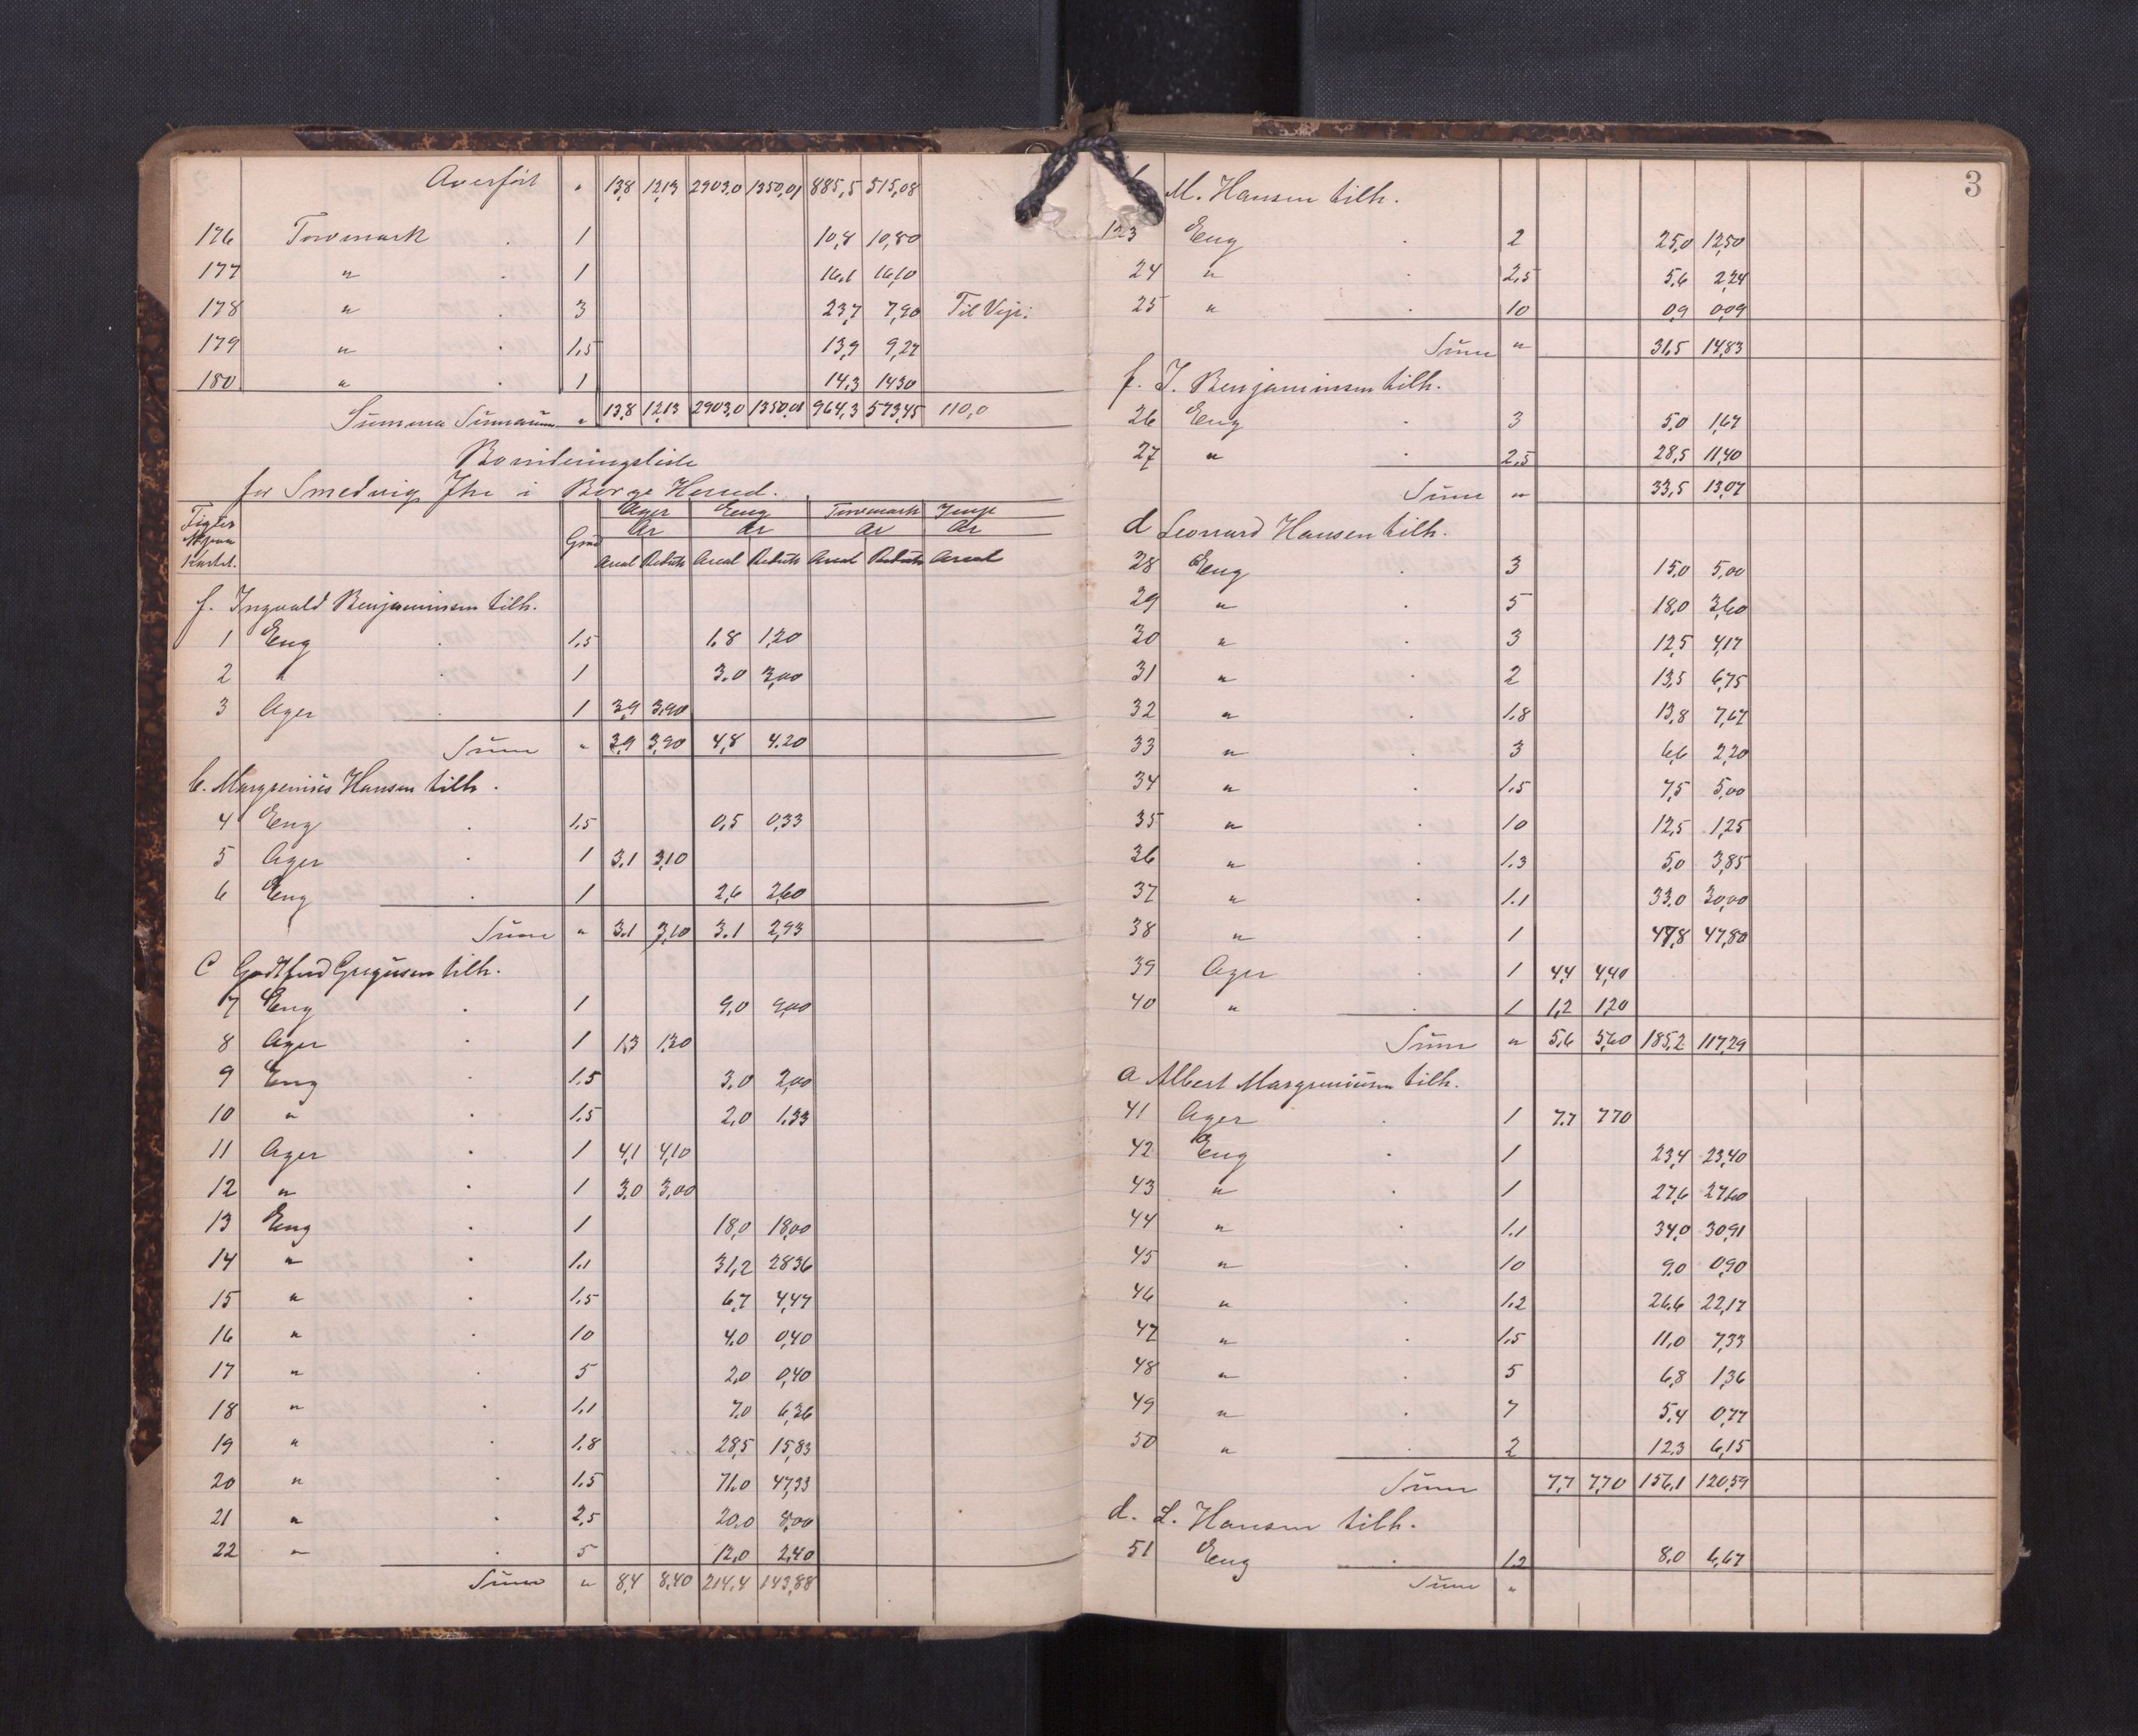 Overført " 13,8 12,13 2903,0 1350,01 885,5 515,08
176 Torvmark . 1 10,8 10,80
177 " . 1 16,1 16,10
178 " . 3 23,7 7,90 Til Veje:
179 " . 1,5 13,9 9,27
180 " . 1 14,3 14,30
Summa Summarum " 13,8 12,13 2903,0 1350,01 964,3 573,45 110,0
Boniteringsliste
for Smedvig Ytre i Borge Herred.
Ager Eng Torvmark Imp
Kartet. Grad Ar Ar Ar Ar
Areal Reduts Areal Reduts Areal Reduts Areal
f. Ingvald Benjaminsen tilh.
1 Eng . 1,5 1,8 1,20
2 " . 1 3,0 3,00
3 Ager . 1 3,9 3,90
Sum " 3,9 3,90 4,8 4,20
b. Margrenius Hansen tilh.
4 Eng . 1,5 0,5 0,33
5 Ager . 1 3,1 3,10
6 Eng . 1 2,6 2,60
Sum " 3,1 3,10 3,1 2,93
C Godtfred Gregusen tilh.
7 Eng . 1 9,0 9,00
8 Ager . 1 1,3 1,30
9 Eng . 1,5 3,0 2,00
10 " . 1,5 2,0 1,33
11 Ager . 1 4,1 4,10
12 " . 1 3,0 3,00
13 Eng . 1 18,0 18,00
14 " . 1,1 31,2 28,36
15 " . 1,5 6,7 4,47
16 " . 10 4,0 0,40
17 " . 5 2,0 0,40
18 " . 1,1 7,0 6,36
19 " . 1,8 28,5 15,83
20 " . 1,5 71,0 47,33
21 " . 2,5 20,0 8,00
22 " . 5 12,0 2,40
Sum " 8,4 8,40 214,4 143,88
3
M. Hansen tilh.
123 Eng . 2 25,0 12,50
24 " . 2,5 5,6 2,24
25 " . 10 0,9 0,09
Sum " 31,5 14,83
f. I. Benjaminsen tilh.
26 Eng . 3 5,0 1,67
27 " . 2,5 28,5 11,40
Sum " 33,5 13,07
d Leonard Hansen tilh.
28 Eng . 3 15,0 5,00
29 " . 5 18,0 3,60
30 " . 3 12,5 4,17
31 " . 2 13,5 6,75
32 " . 1,8 13,8 7,67
33 " . 3 6,6 2,20
34 " . 1,5 7,5 5,00
35 " . 10 12,5 1,25
36 " . 1,3 5,0 3,85
37 " . 1,1 33,0 30,00
38 " . 1 47,8 47,80
39 Ager . 1 4,4 4,40
40 " . 1 1,2 1,20
Sum " 5,6 5,60 185,2 117,29
a Albert Margreniusen tilh.
41 Ager . 1 7,7 770
42 Eng . 1 23,4 23,40
43 " . 1 27,6 27,60
44 " . 1,1 34,0 30,91
45 " . 10 9,0 0,90
46 " . 1,2 26,6 22,17
47 " . 1,5 11,0 7,33
48 " . 5 6,8 1,36
49 " . 7 5,4 0,77
50 " . 2 12,3 6,15
Sum 7,7 7,70 156,1 120,59
d. L. Hansen tilh.
51 Eng . 1,2 8,0 6,67
Sum "